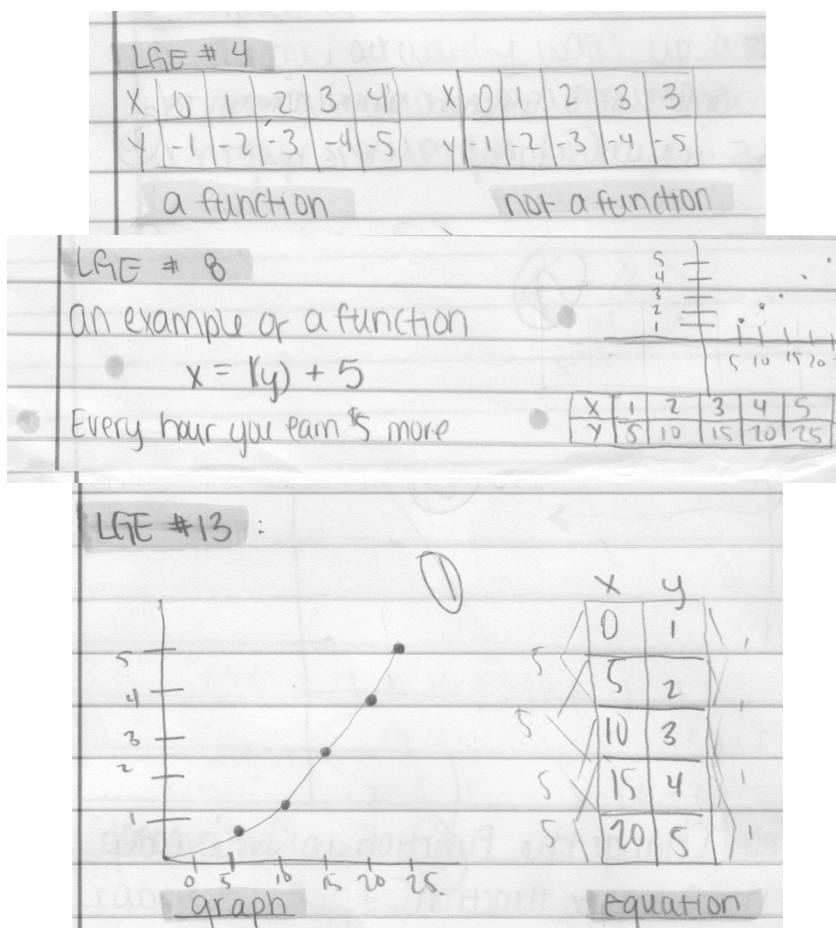 LGE # 4
X 0 1 2 3 4 X 0 1 2 3 3
Y -1 -2 -3 -4 -5 Y -1 -2 -3 -4 -5
a function not a function
LGE # 8
an example of a function
x = 1(y) + 5
Every hour you earn $5 more
5
4
3
2
1
5 10 15 20
X 1 2 3 4 5
Y 5 10 15 20 25
LGE #13 :
1
5
4
3
2
1
0 5 10 15 20 25.
graph
x y
0 1
5 1
5 2
5 1
10 3
5 1
15 4
5 1
20 5
equation